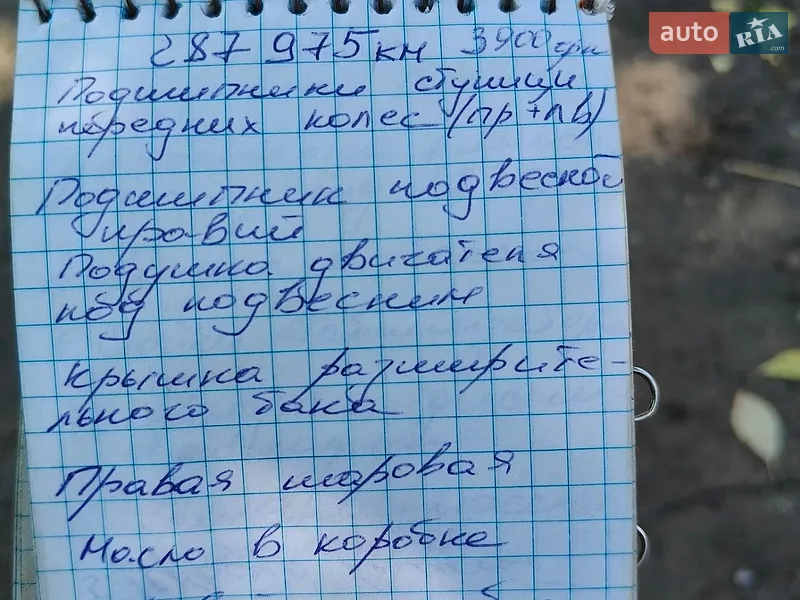 auto RIA .com
287 975 км 3900 грн
Подшипники ступици
передних колес (пр + лв)
Подшипник подвесной
правий
Подушка двигателя
под подвесним
крышка разширите-
льного бака
Правая шаровая
Масло в коробке